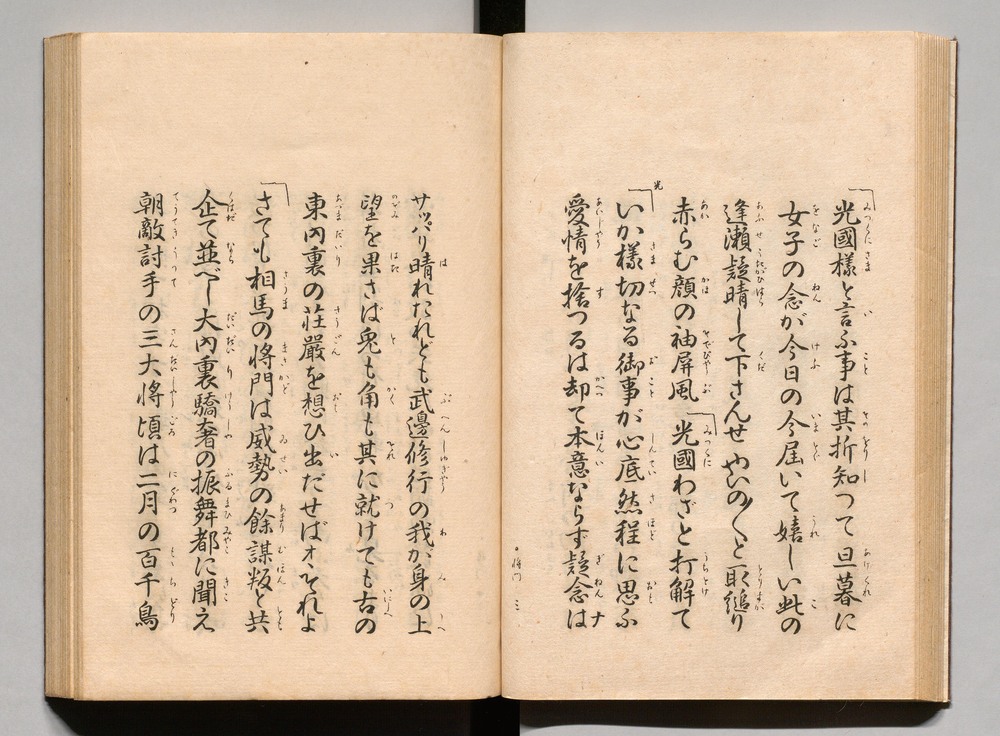 光國樣と言ふ事は其折知つて旦暮に
女子の念が今日の今屆いて嬉しい此の
逢瀬疑晴して下さんせやいの〱と取縋り
赤らむ顔の袖屏風 光國わざと打解て
光
いか樣切なる御事が心底然程に思ふ
愛情を捨つるは却て本意ならず疑念は
将門 三
サッパリ晴れたれども武邊修行の我が身の上
望を果さば兎も角も其に就けても古の
東内裏の荘嚴を想ひ出だせばオヽそれよ
さても相馬の将門は威勢の餘謀叛と共
企て並べし大内裏驕奢の振舞都に聞え
朝敵討手の三大将頃は二月の百千鳥